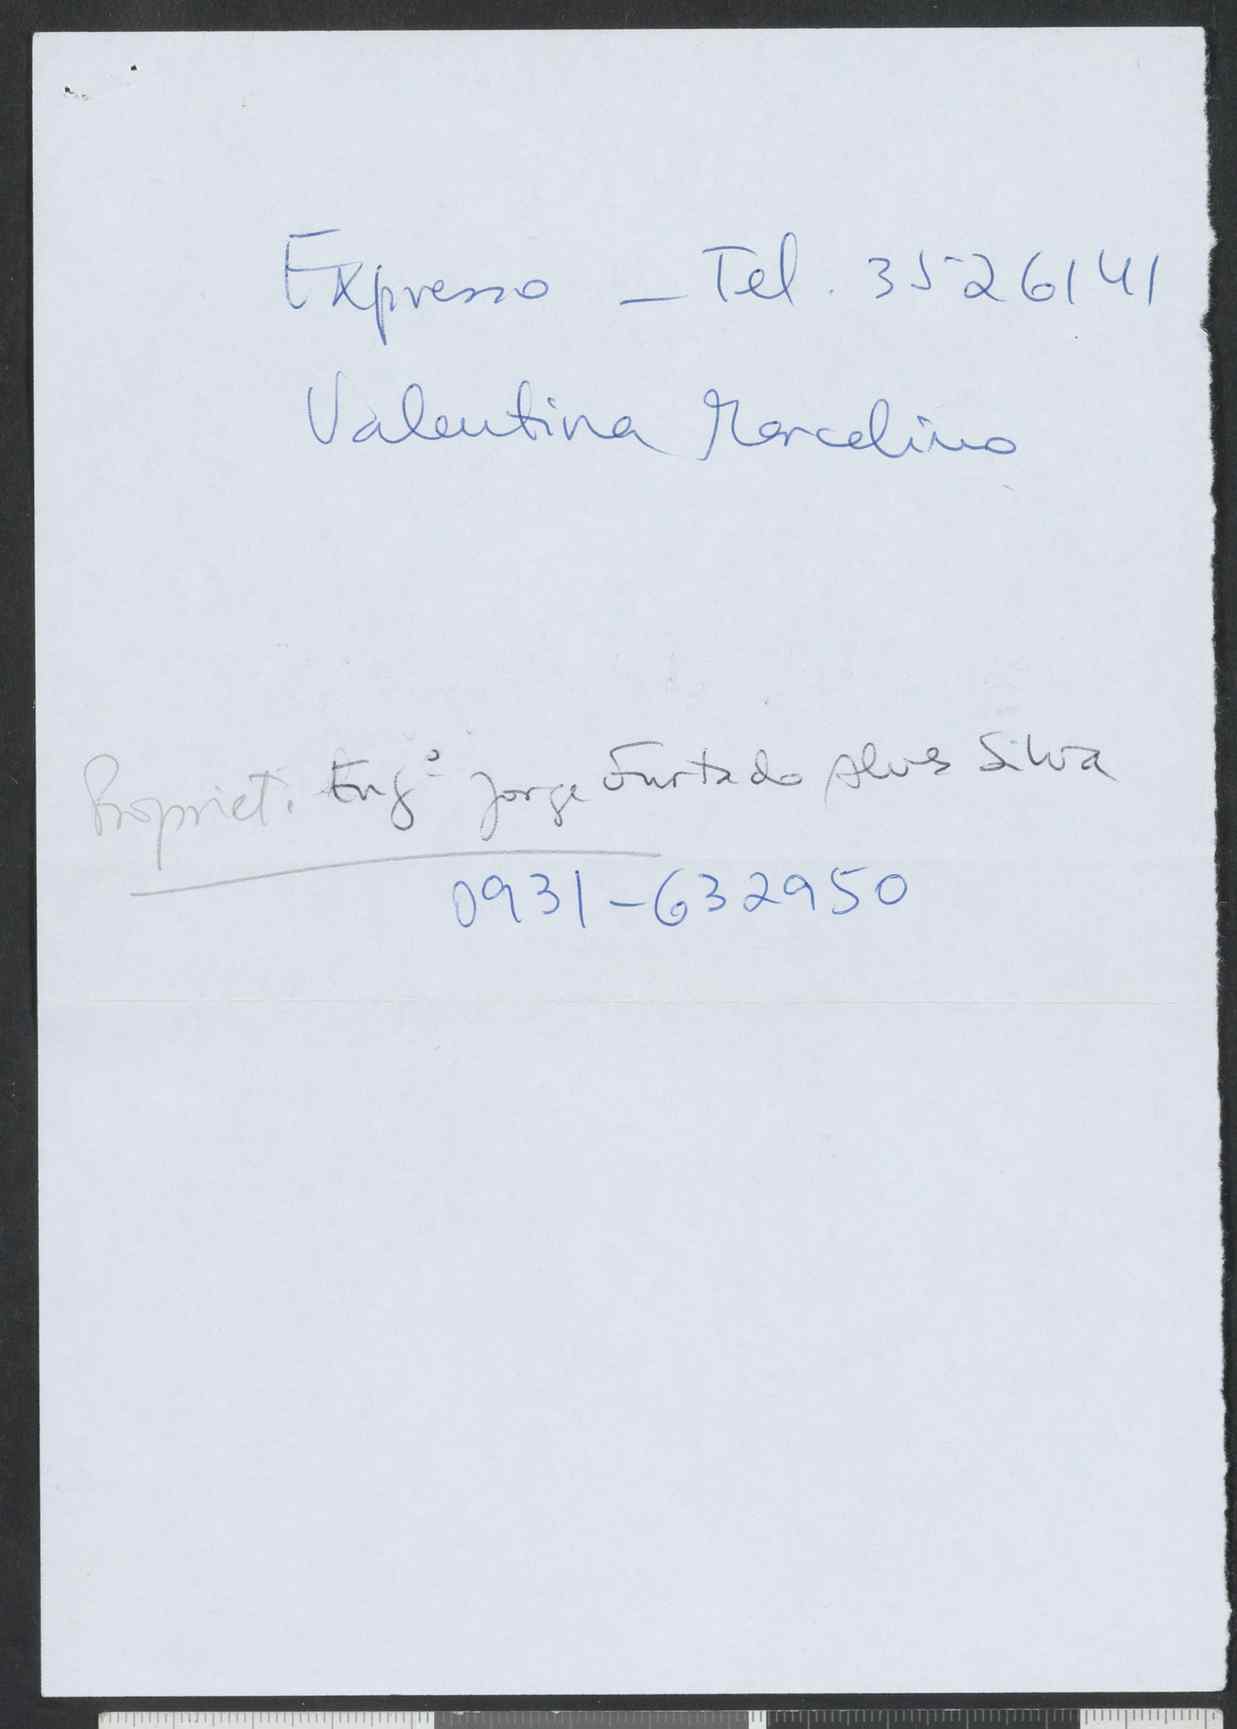 Expresso – Tel. 3526141
Valentina Marcelino
Propriet. Engº Jorge Furtado Alves Silva
0931-632950